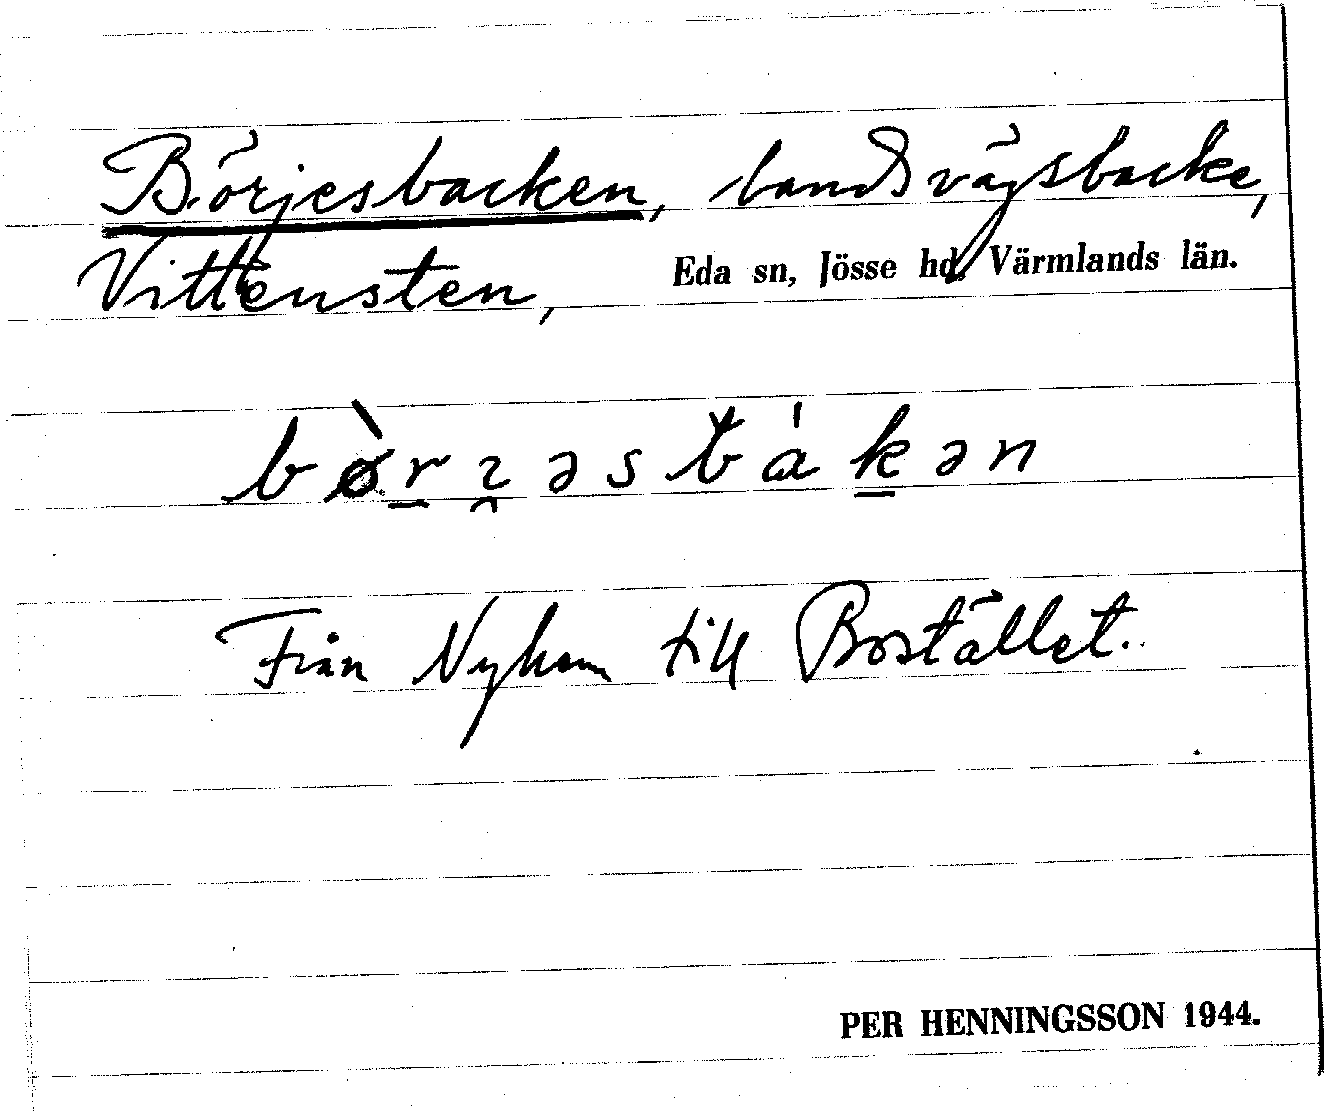 Börjesbacken, landsvägsbacke,
Vittensten, Eda sn, Jösse hd, Värmlands län.
bø̀rɂəsbákən
Från Nyhem till Bostället.
PER HENNINGSSON 1944.